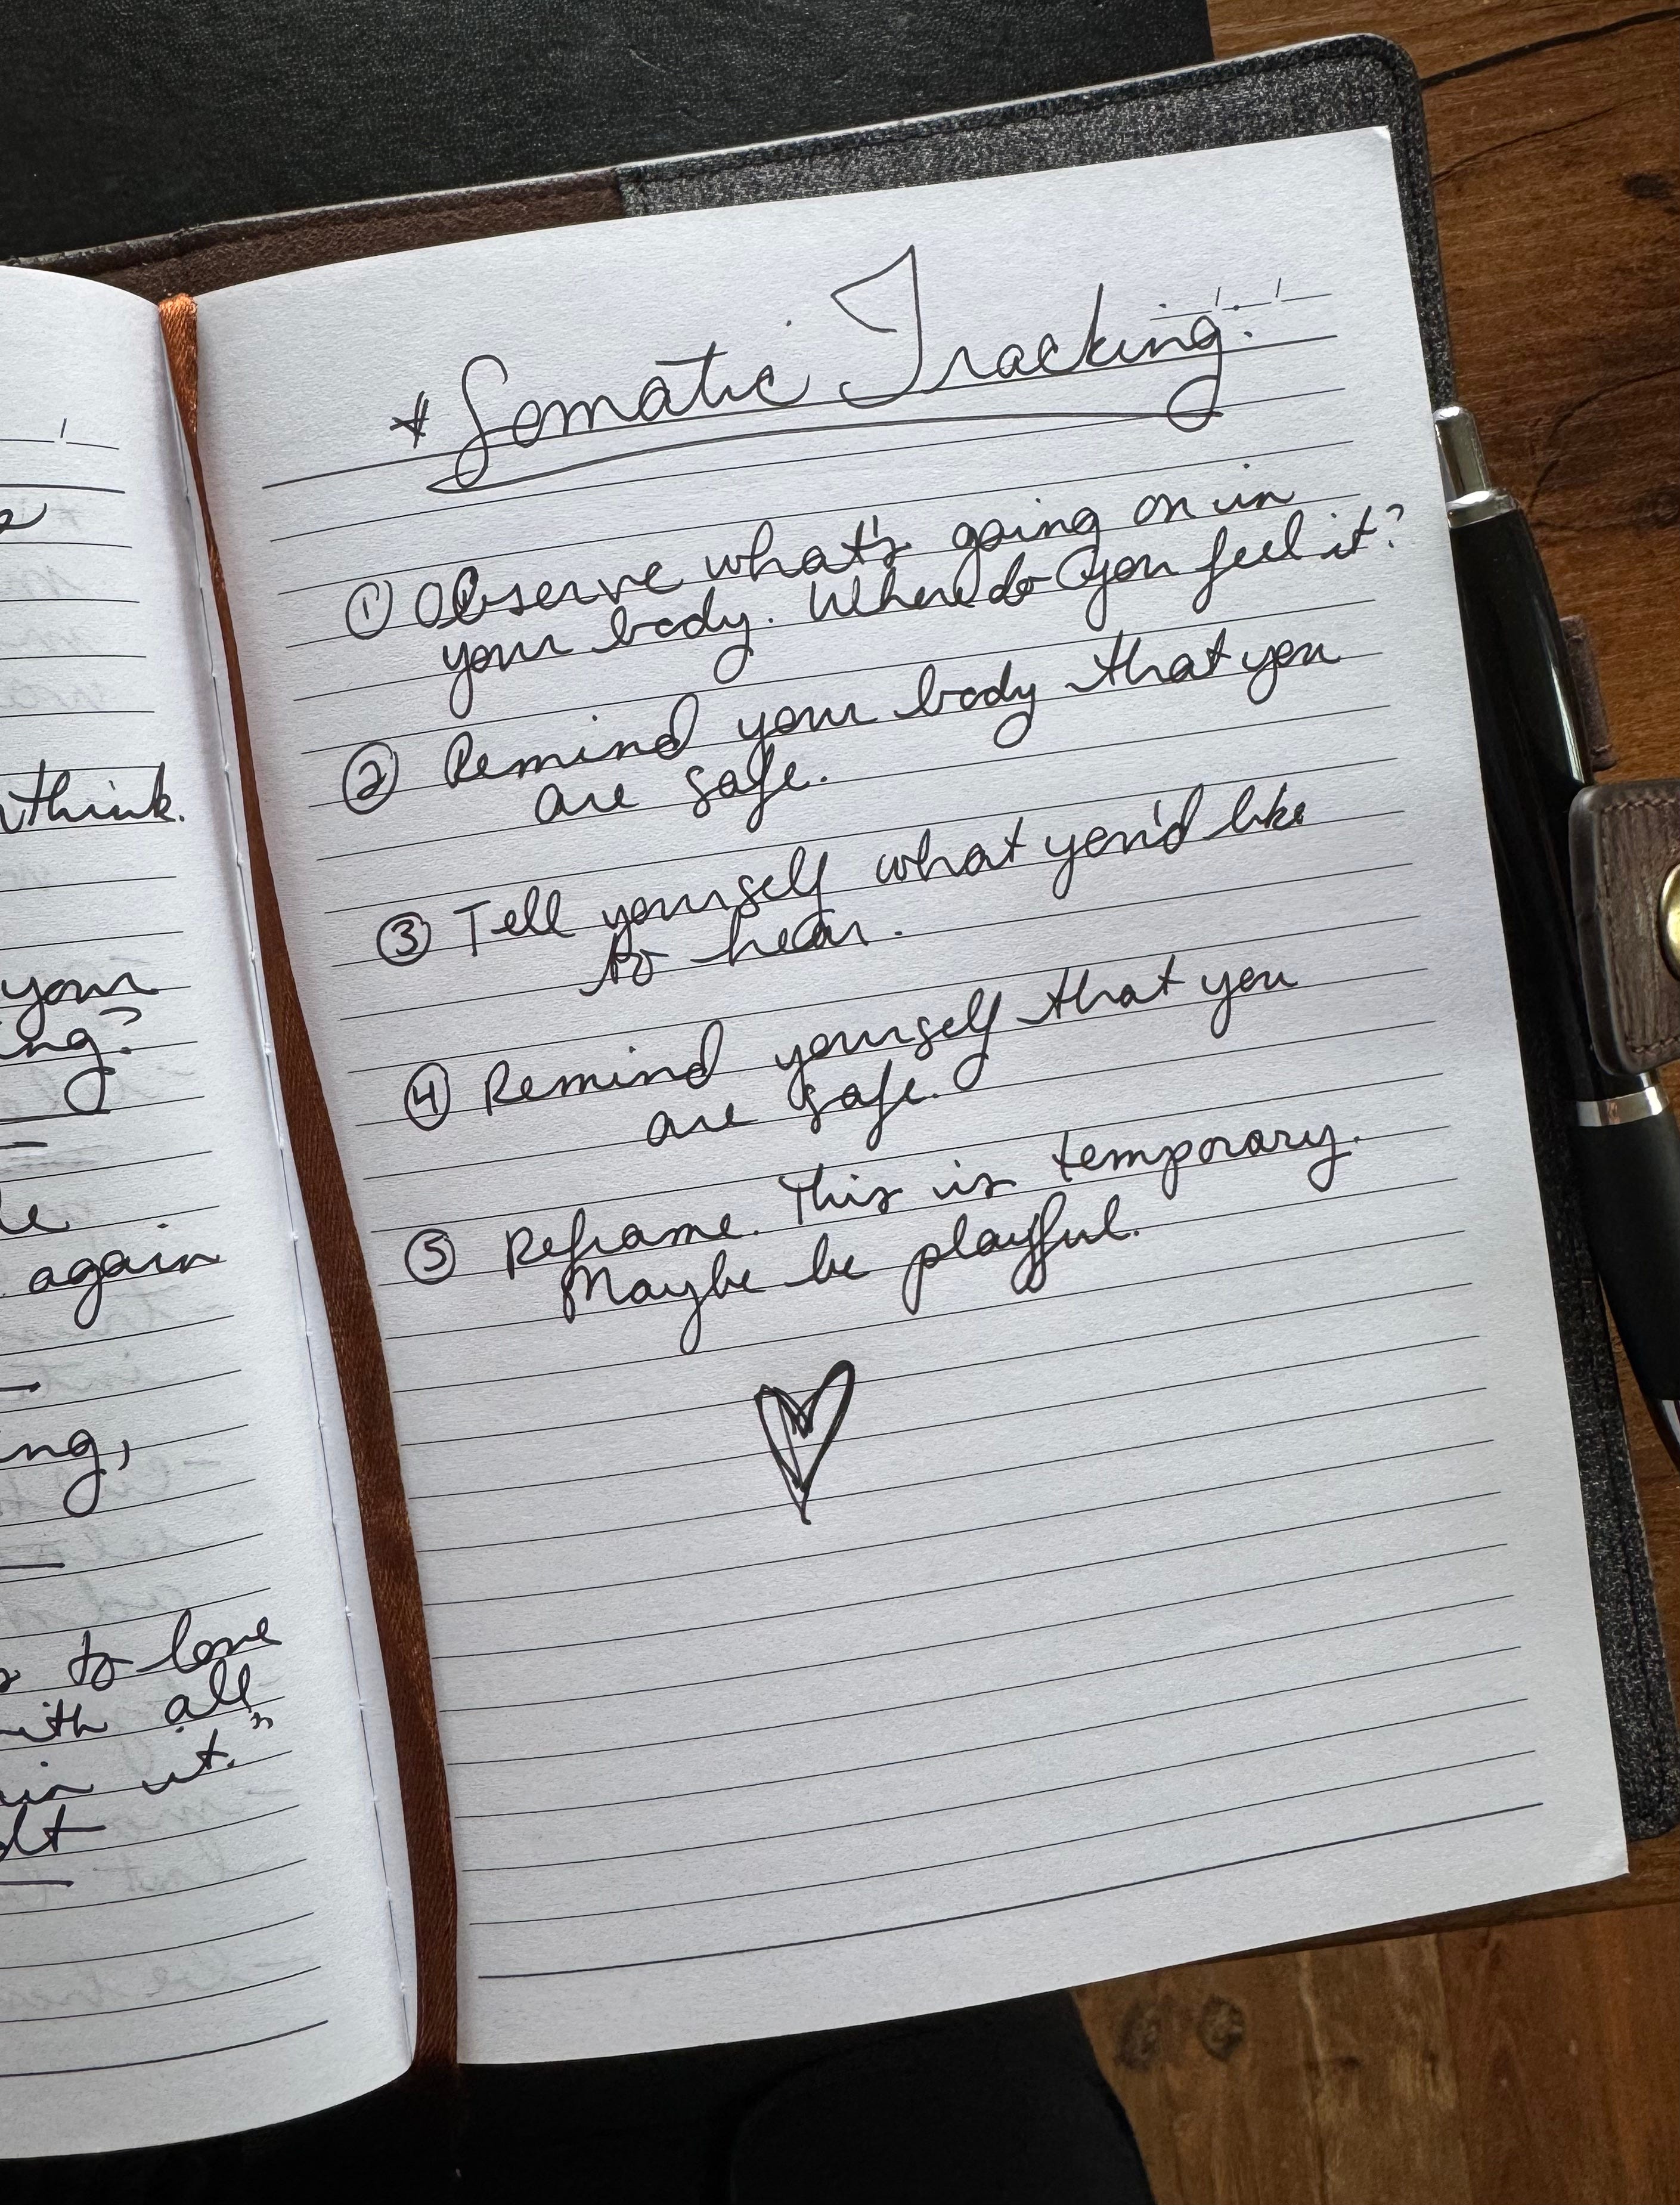 think.
your
again
to love
with all
in it."
* Somatic Tracking:
① Observe what's going on in
your body. Where do you feel it?
② Remind your body that you
are safe.
③ Tell yourself what you'd like
to hear.
④ Remind yourself that you
are safe.
⑤ Reframe. This is temporary.
Maybe be playful.